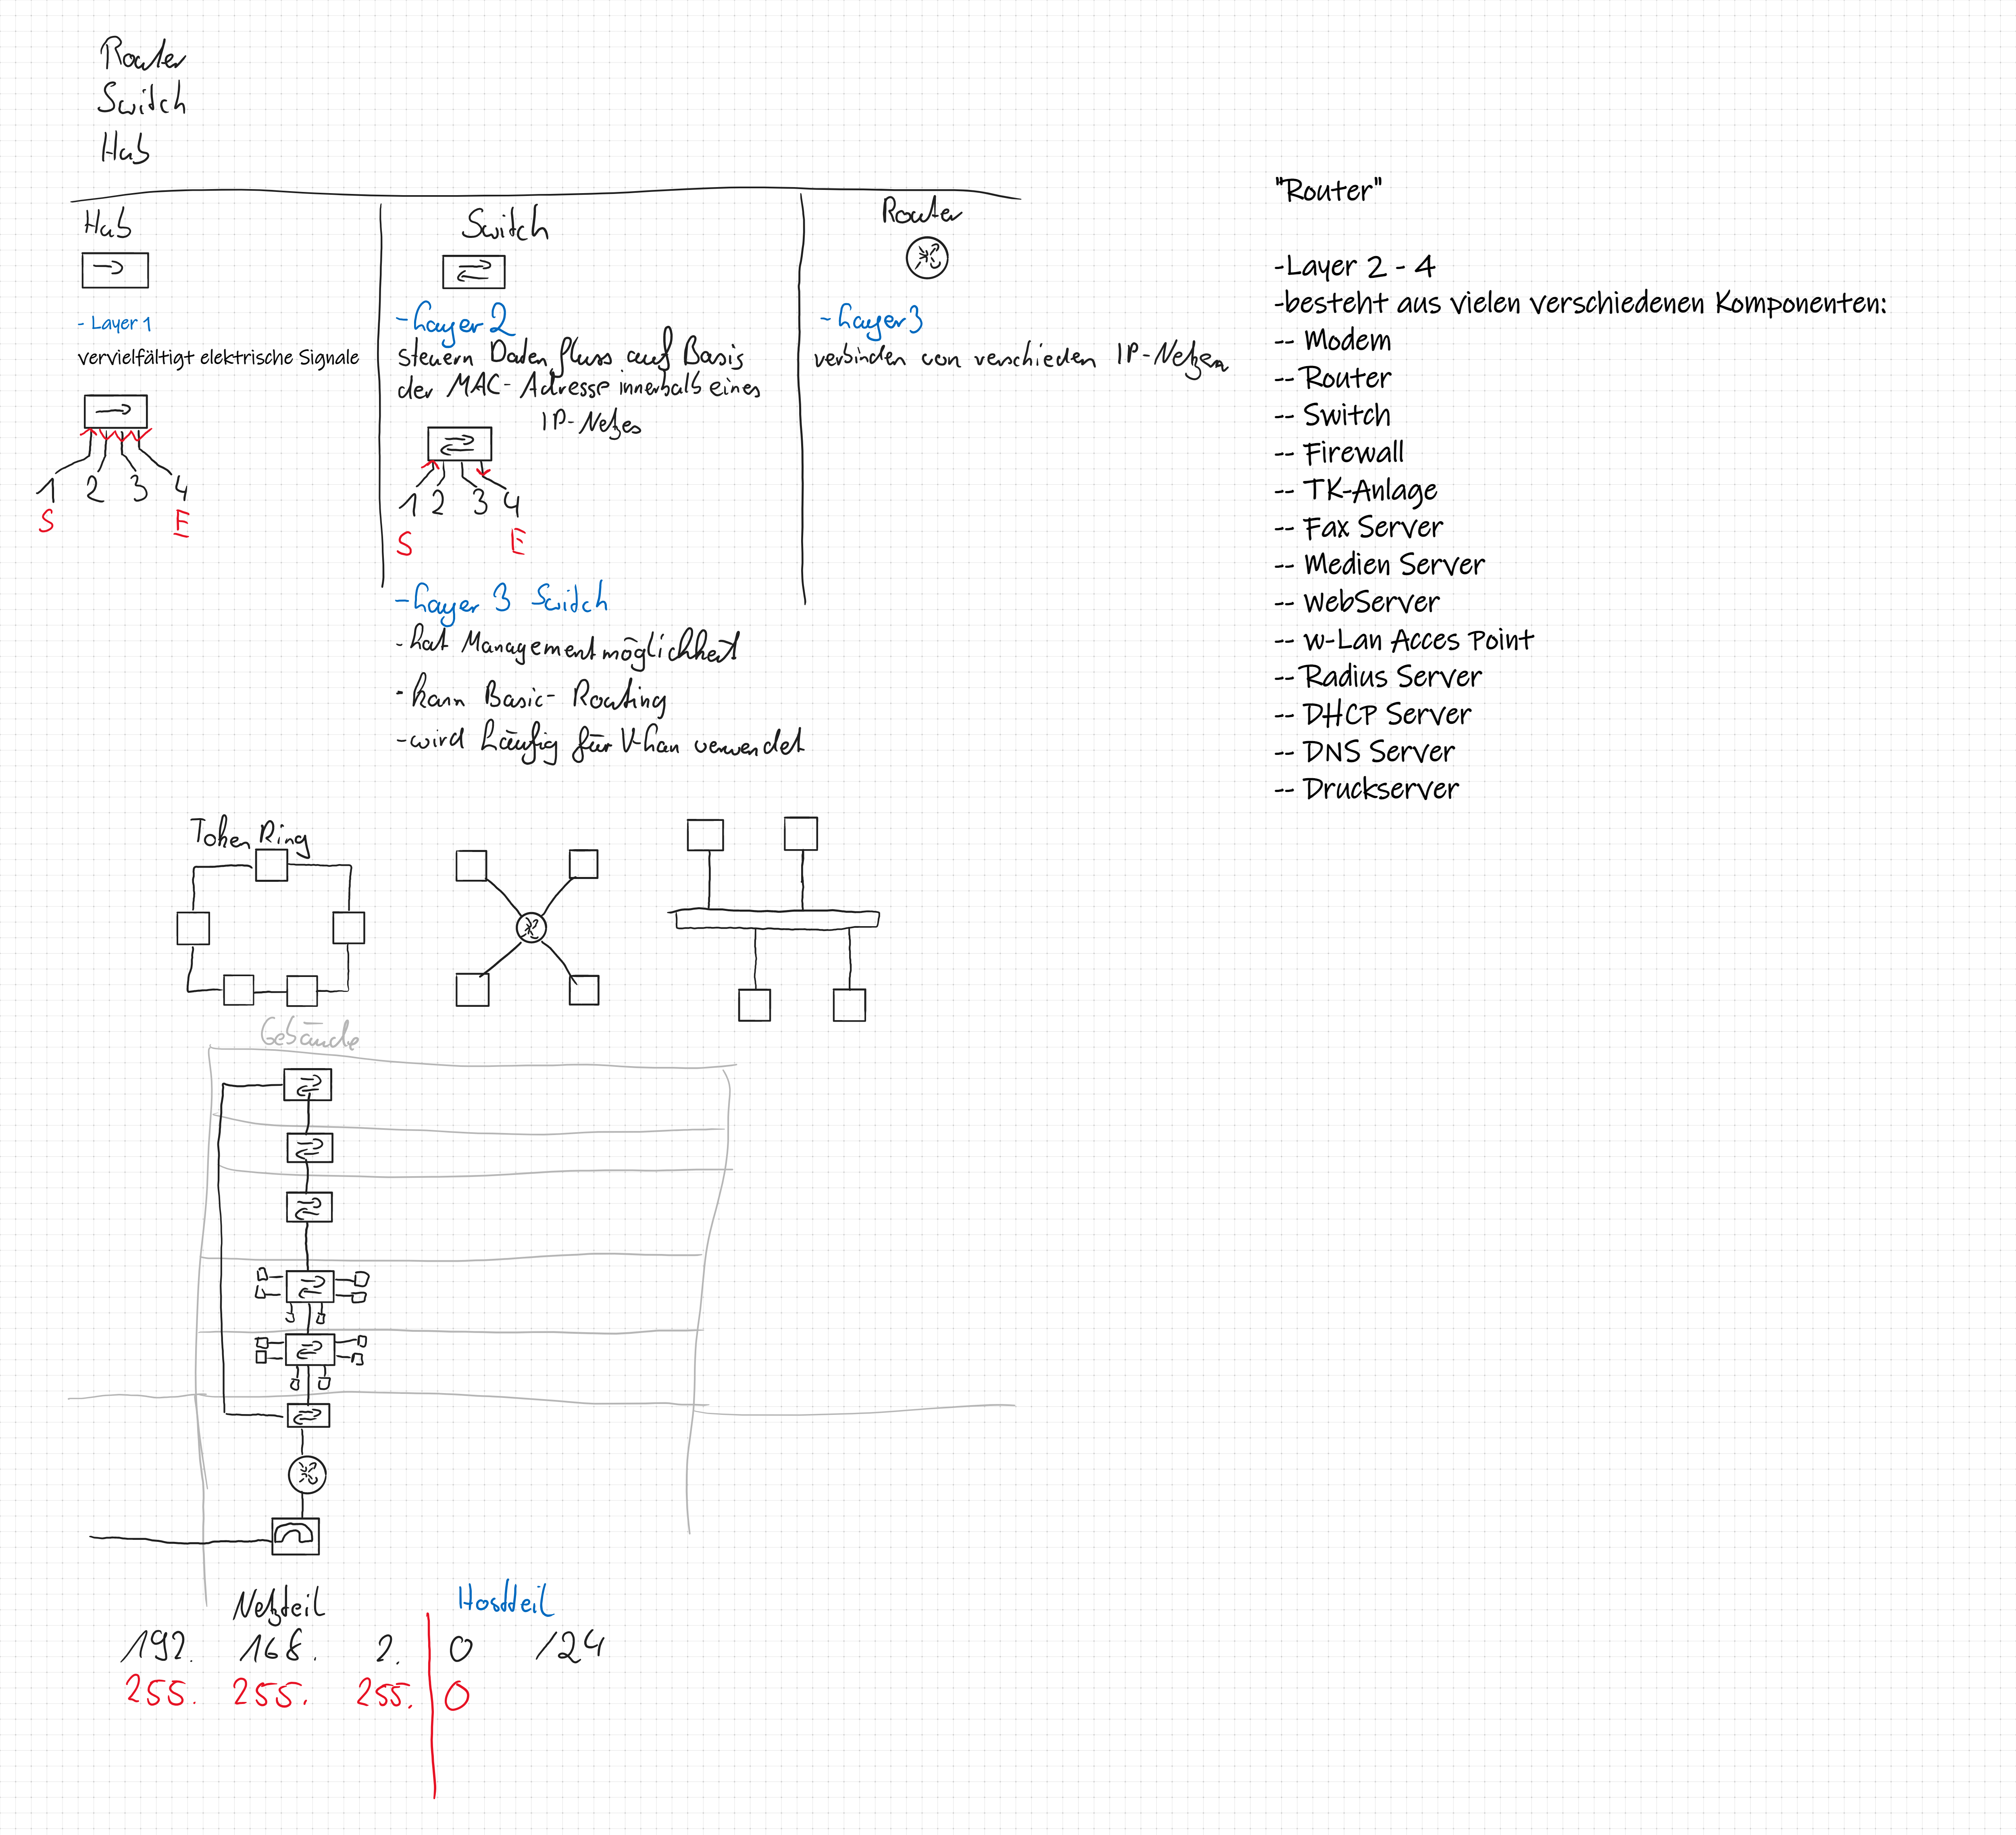 Router
Switch
Hub
Hub
- Layer 1
vervielfältigt elektrische Signale
1 2 3 4
S E
Switch
- Layer 2
steuern Datenfluss auf Basis
der MAC-Adresse innerhalb eines
IP-Netzes
1 2 3 4
S E
- Layer 3 Switch
- hat Managementmöglichkeit
- kann Basic-Routing
- wird häufig für V-Lan verwendet
Router
- Layer 3
verbinden von verschieden IP-Netzen
"Router"
-Layer 2 - 4
-besteht aus vielen verschiedenen Komponenten:
-- Modem
-- Router
-- Switch
-- Firewall
-- TK-Anlage
-- Fax Server
-- Medien Server
-- WebServer
-- w-Lan Acces Point
-- Radius Server
-- DHCP Server
-- DNS Server
-- Druckserver
Token Ring
Gebäude
Netzteil Hostteil
192. 168. 2. 0 /24
255. 255. 255. 0